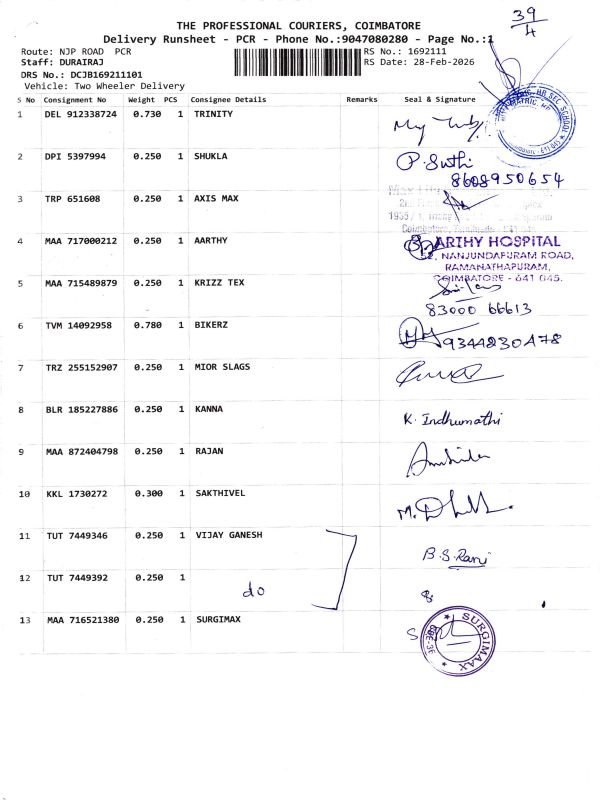 39
4
THE PROFESSIONAL COURIERS, COIMBATORE
Delivery Runsheet - PCR - Phone No.:9047080280 - Page No.:1
Route: NJP ROAD PCR
RS No.: 1692111
Staff: DURAIRAJ
RS Date: 28-Feb-2026
DRS No.: DCJB169211101
Vehicle: Two Wheeler Delivery
S No Consignment No Weight PCS Consignee Details Remarks Seal & Signature
1 DEL 912338724 0.730 1 TRINITY
2 DPI 5397994 0.250 1 SHUKLA P. Suthi
8608950654
3 TRP 651608 0.250 1 AXIS MAX
4 MAA 717000212 0.250 1 AARTHY ARTHY HOSPITAL
NANJUNDAPURAM ROAD,
RAMANATHAPURAM,
COIMBATORE - 641 045.
5 MAA 715489879 0.250 1 KRIZZ TEX
83000 66613
6 TVM 14092958 0.780 1 BIKERZ 9344230478
7 TRZ 255152907 0.250 1 MIOR SLAGS
8 BLR 185227886 0.250 1 KANNA K. Indhumathi
9 MAA 872404798 0.250 1 RAJAN
10 KKL 1730272 0.300 1 SAKTHIVEL
11 TUT 7449346 0.250 1 VIJAY GANESH B.S. Rani
12 TUT 7449392 0.250 1 do
13 MAA 716521380 0.250 1 SURGIMAX SURGIMAAX